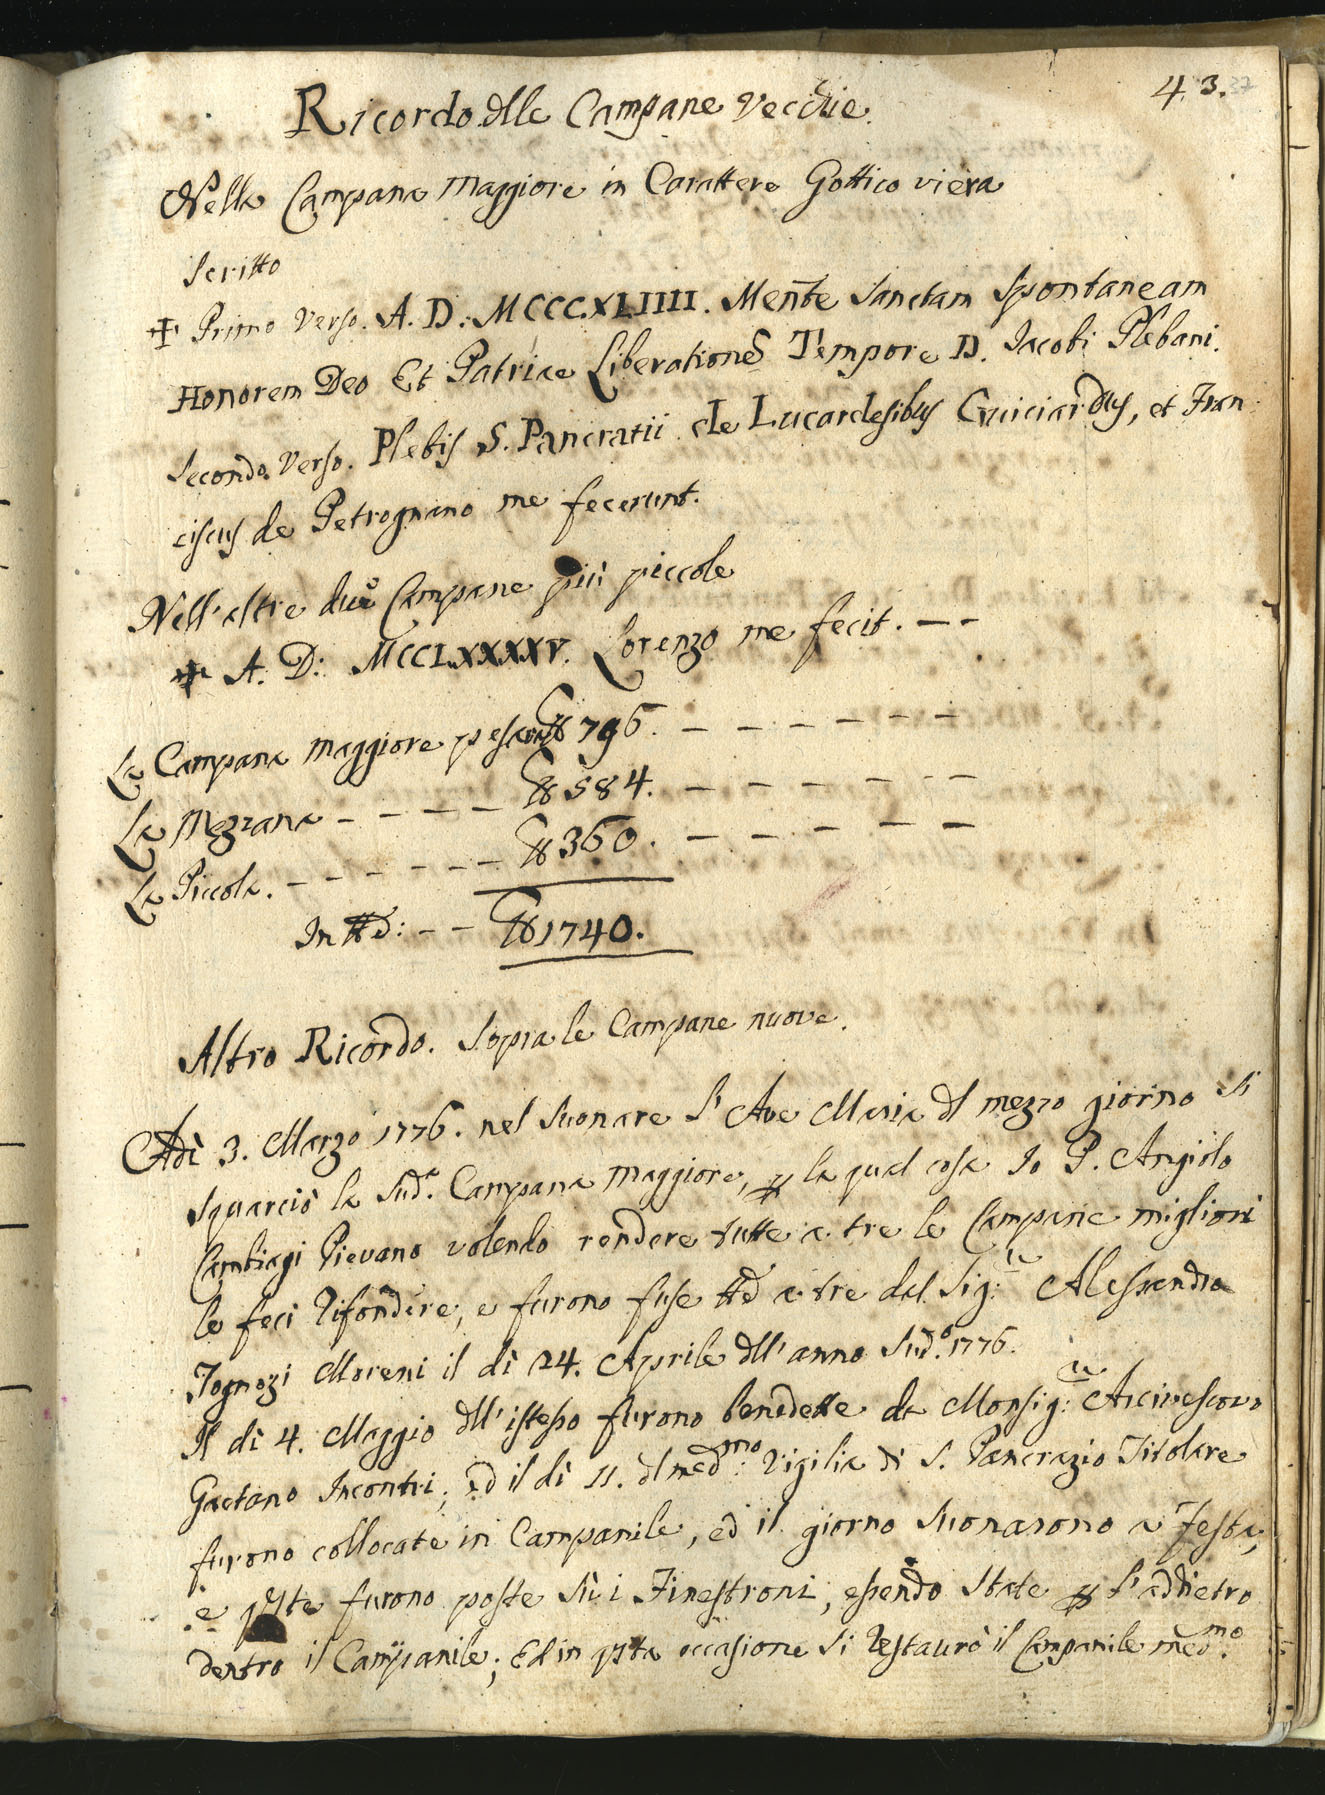 43. 37
Ricordo dlle Campane Vecchie.
Nella Campana Maggiore in Carattere Gottico viera
Scritto
✠ Primo Verso. A. D.: MCCCXLIIII. Mente Sanctam Spontaneam
Honorem Deo Et Patriae Liberationes Tempore D. Iacobi Plebani.
Secondo Verso. Plebis S. Pancratii de Lucardesibus Guiciardus, et Fran
ciscus de Petrognano me fecerunt.
Nell'altre due Campane più piccole
✠ A. D: MCCLXXXXV. Lorenzo me fecit. — —
La Campana maggiore pesava ℔ 796. — — — — — —
La Mezzana — — — — ℔ 584. — — — — — —
La Piccola. — — — — — — ℔ 360. — — — — — —
In ttº: — — ℔ 1740.
Altro Ricordo. Sopra le Campane nuove.
Adì 3. Marzo 1776. nel suonare l'Ave Maria dl mezzo giorno si
squarciò la Sudª. Campana maggiore, p la qual cosa Io P. Angiolo
Cambiagi Pievano volendo rendere tutte a tre le Campane migliori
le feci Rifondere, e furono fuse ttº a tre dal Sig:re Alessandro
Tognozi Moreni il dì 24. Aprile dll'anno Sudº. 1776.
Il dì 4. Maggio dll'istesso furono benedette da Monsig:re Arcivescovo
Gaetano Incontri, ed il dì 11. dl medmo: Vigilia di S. Pancrazio Titolare
furono collocate in Campanile, ed il giorno suonarono a Festa,
e qste furono poste sù i Finestroni, essendo State p l'addietro
dentro il Campanile; Ed in qsta occasione si Restaurò il Campanile medmo.